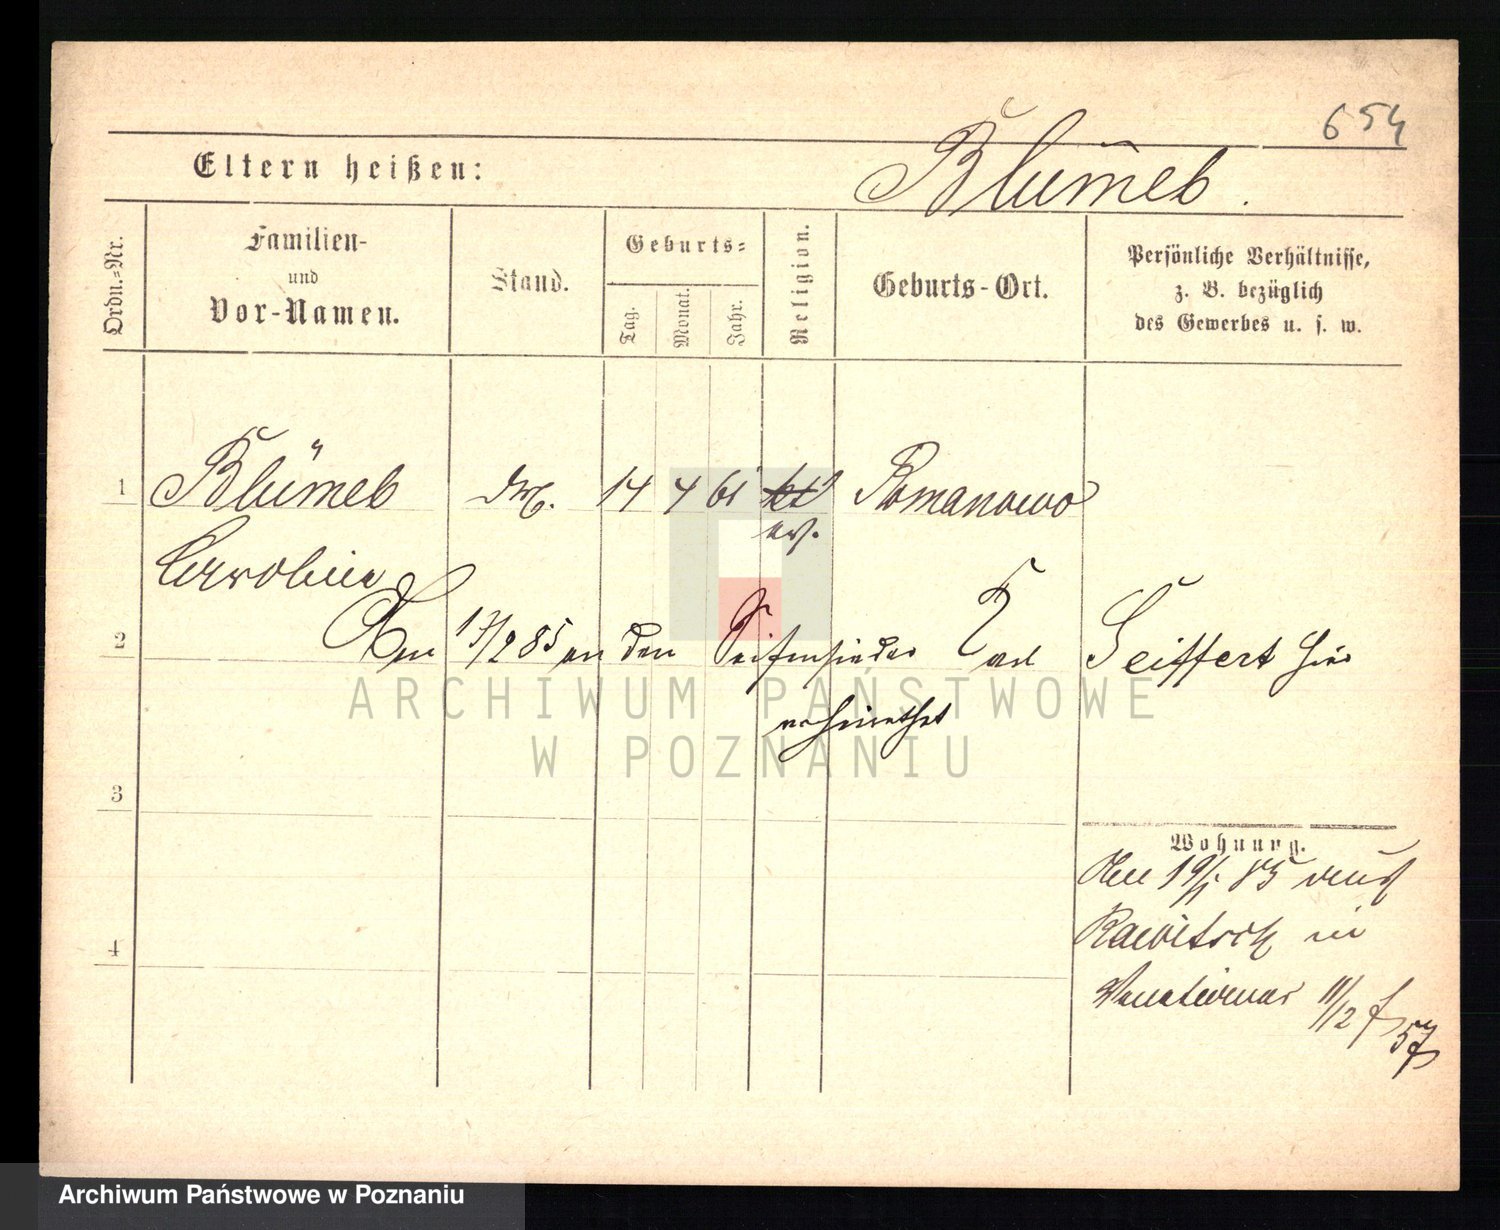 654
Eltern heißen: Blümel.
Ordn.-Nr.
Familien-
und
Vor-Namen.
Stand.
Geburts-
Tag.
Monat.
Jahr.
Religion.
Geburts-Ort.
Persönliche Verhältnisse,
z. B. bezüglich
des Gewerbes u. s. w.
1 Blümel 14 4 61 kt Romanowo
ev.
Caroline
2 Am 17/2 85 an den Seifensieder Carl Seiffert hier
verheirathet
3
Wohnung.
Am 19/1 85 aus
Rawitsch in
4
11/12
57
ARCHIWUM PAŃSTWOWE
W POZNANIU
Archiwum Państwowe w Poznaniu